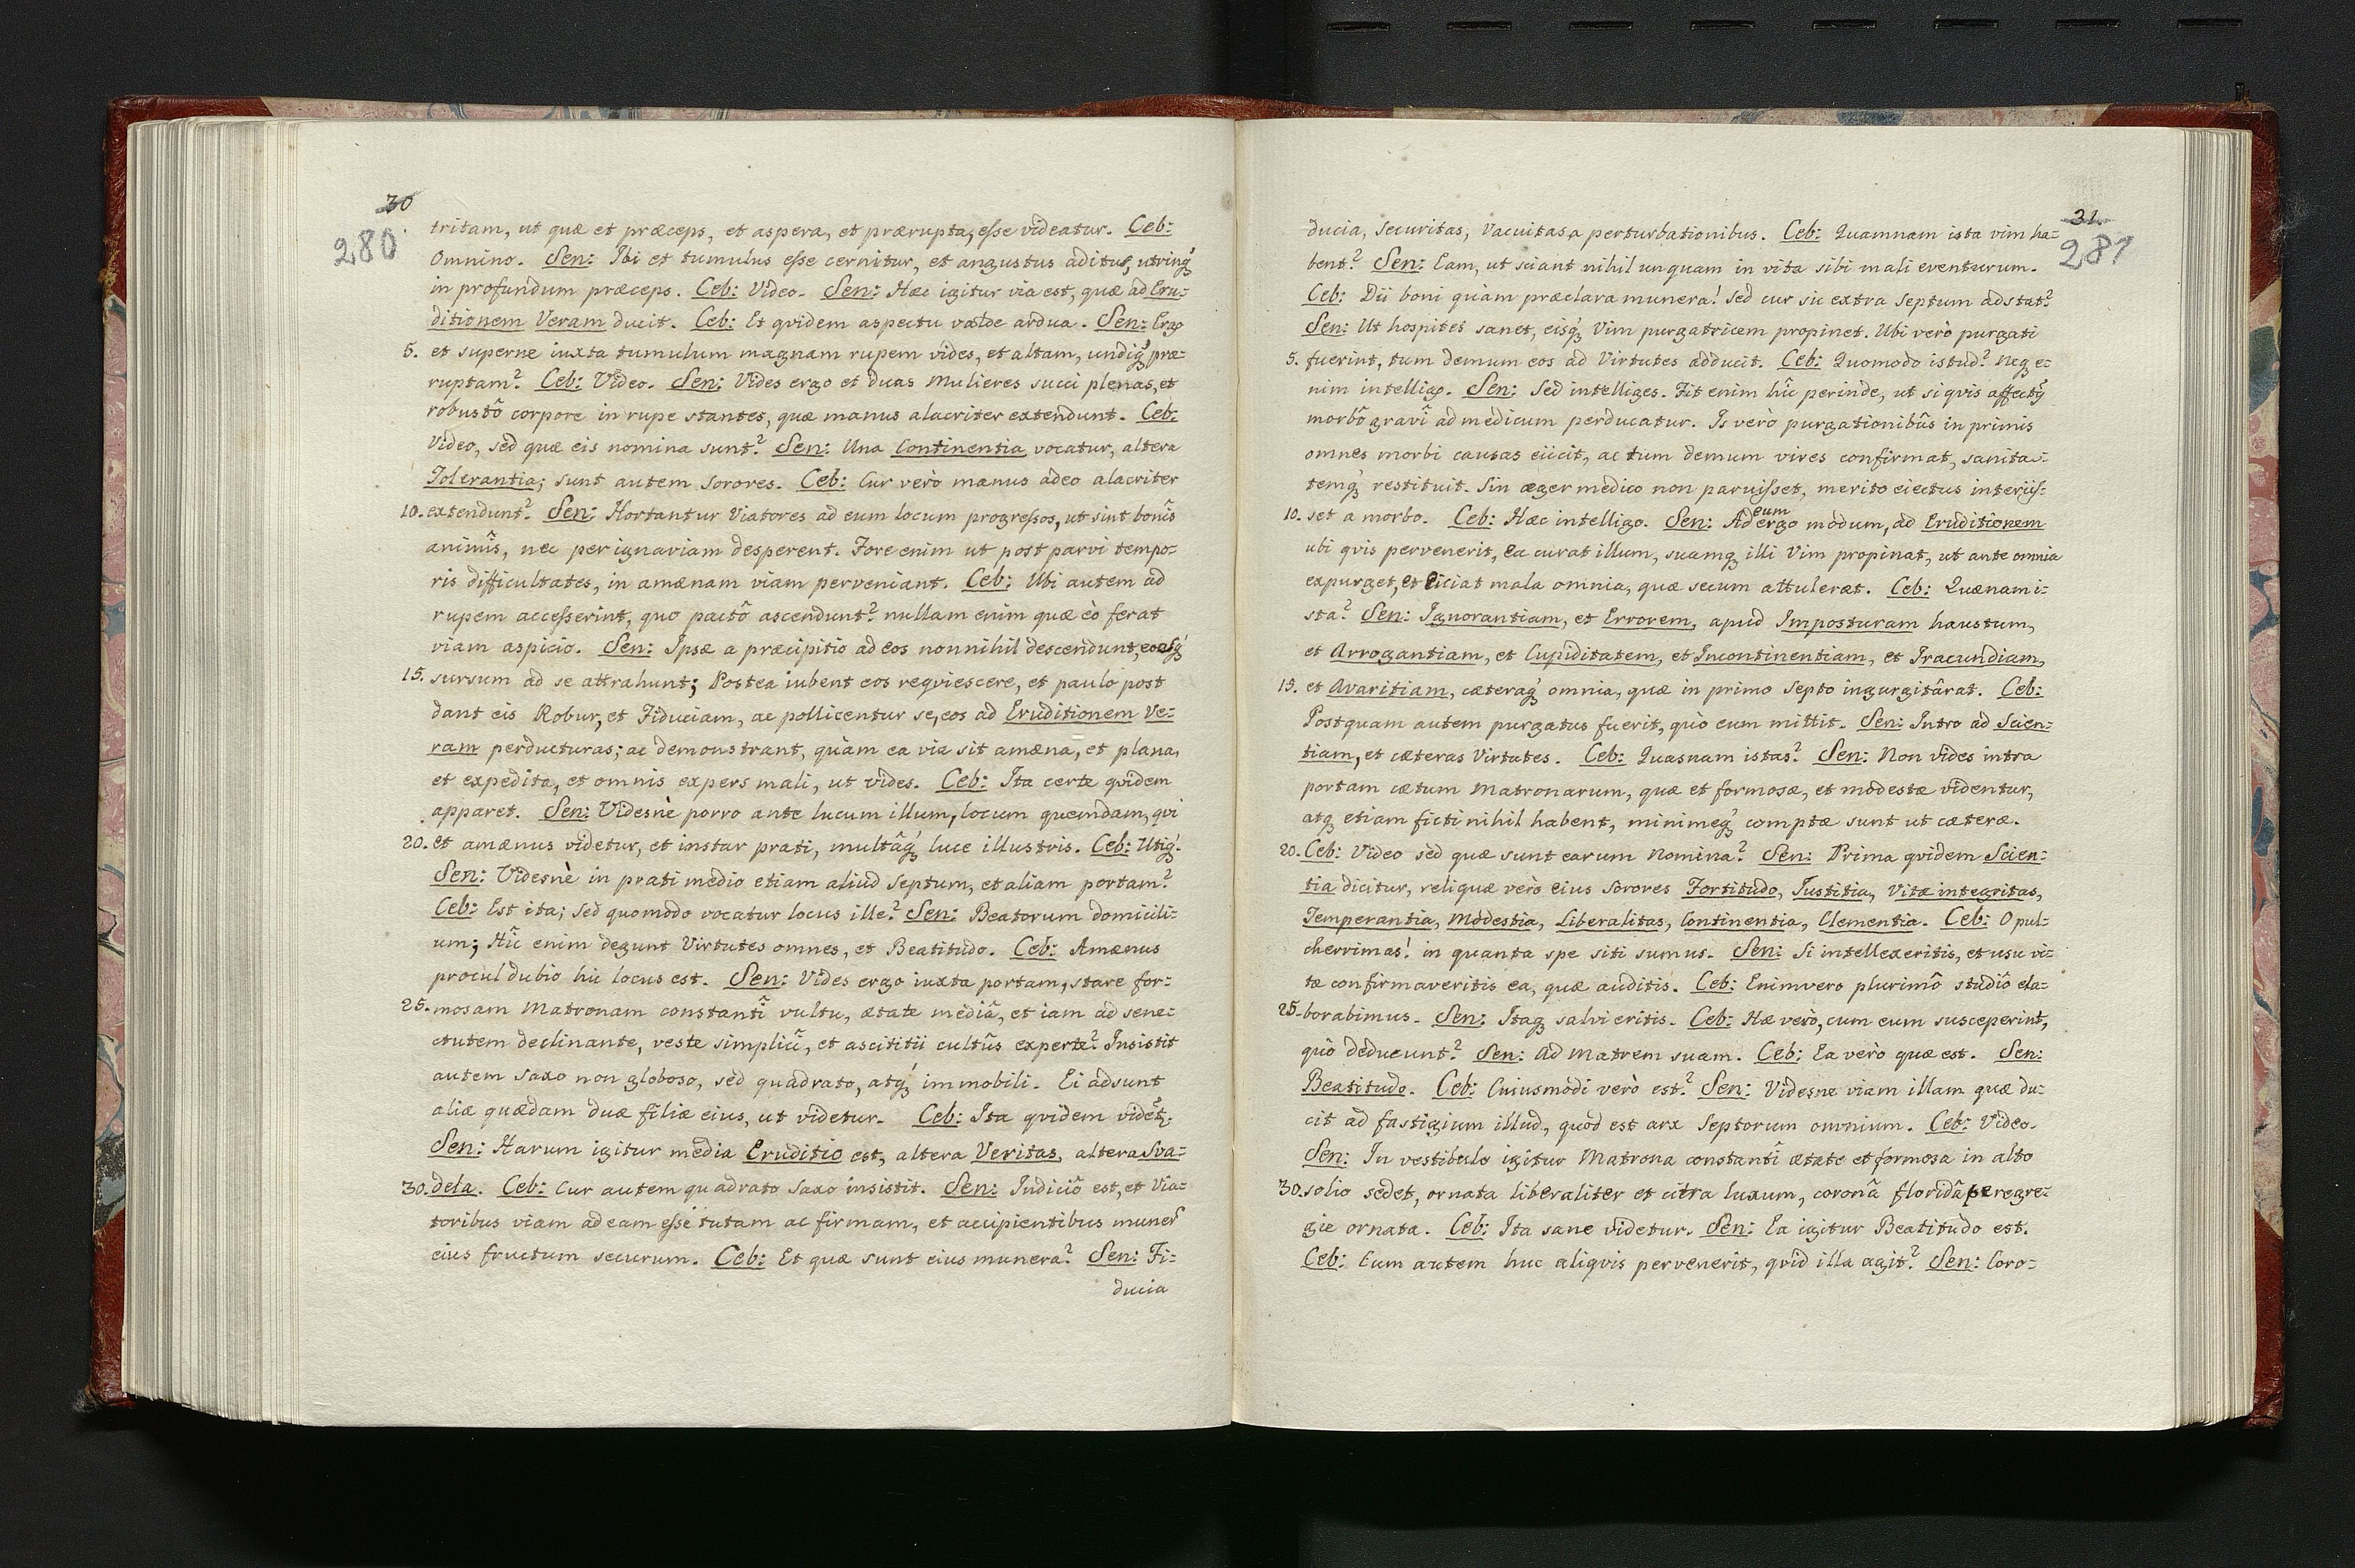 30
280
tritam, ut quæ et præceps, et aspera, et prærupta, esse videatur. Ceb:
Omnino. Sen: Ibi et tumulus esse cernitur, et angustus aditus, utring̃
in profundum præceps. Ceb: Video. Sen: Hæc igitur via est, quæ ad Eru=
ditionem Veram ducit. Ceb: Et qvidem aspectu valde ardua. Sen: Ergo
5. et superne iuxta tumulum magnam rupem vides, et altam, undiq́ præ=
ruptam? Ceb: Video. Sen: Vides ergo et duas Mulieres succi plenas, et
robustô corpore in rupe stantes, quæ manus alacriter extendunt. Ceb:
Video, sed quæ eis nomina sunt? Sen: Una Continentia vocatur, altera
Tolerantia; sunt autem sorores. Ceb: Cur verò manus adeo alacriter
10. extendunt? Sen: Hortantur Viatores ad eum locum progressos, ut sint bonîs
animîs, nec per ignaviam desperent. Fore enim ut post parvi tempo=
ris difficultates, in amænam viam perveniant. Ceb: Ubi autem ad
rupem accesserint, quo pactô ascendunt? nullam enim quæ eò ferat
viam aspicio. Sen: Ipsæ a præcipitio ad eos nonnihil descendunt, eosq́
15. sursum ad se attrahunt; Postea iubent eos reqviescere, et paulo post
dant eis Robur, et Fiduciam, ac pollicentur se, eos ad Eruditionem Ve=
ram perducturas; ac demonstrant, quàm ea via sit amæna, et plana,
et expedita, et omnis expers mali, ut vides. Ceb: Ita certe qvidem
apparet. Sen: Videsnè porro ante lucum illum, locum quemdam, qvi
20. et amænus videtur, et instar prati, multâq́ luce illustris. Ceb: Utiq́.
Sen: Videsnè in prati medio etiam aliud Septum, et aliam portam?
Ceb: Est ita; sed quomodo vocatur locus ille? Sen: Beatorum domicili=
um; Hîc enim degunt Virtutes omnes, et Beatitudo. Ceb: Amænus
procul dubio hic locus est. Sen: Vides ergo iuxta portam, stare for=
25. mosam Matronam constantî vultu, ætate mediâ, et iam ad sene=
ctutem declinante, veste simplicî, et ascititii cultûs experte? Insistit
autem saxo non globoso, sed quadrato, atq́ immobili. Ei adsunt
aliæ quædam duæ filiæ eius, ut videtur. Ceb: Ita qvidem videt.
Sen: Harum igitur media Eruditio est, altera Veritas, altera Sva=
30. dela. Ceb: Cur autem quadrato saxo insistit. Sen: Indiciô est, et Via=
toribus viam ad eam esse tutam ac firmam, et accipientibus muner
eius fructum securum. Ceb: Et quæ sunt eius munera? Sen: Fi=
ducia
31.
281
ducia, Securitas, Vacuitas a perturbationibus. Ceb: Quamnam ista vim ha=
bent? Sen: Eam, ut sciant nihil unquam in vita sibi mali eventurum.
Ceb: Dii boni quàm præclara munera! sed cur sic extra Septum adstat?
Sen: Ut hospites sanet, eisq́ Vim purgatricem propinet. Ubi verò purgati
5. fuerint, tum demum eos ad Virtutes adducit. Ceb: Quomodo istud? neq e=
nim intelligo. Sen: Sed intelliges. Fit enim hîc perinde, ut si qvis affectq
morbô gravî ad medicum perducatur. Is verò purgationibûs in primis
omnes morbi causas eiicit, ac tum demum vires confirmat, sanita=
temq́ restituit. Sin æger medico non paruisset, merito eiectus interiis=
10. set a morbo. Ceb: Hæc intelligo. Sen: Ad eum ergo modum, ad Eruditionem
ubi qvis pervenerit, ea curat illum, suamq illi Vim propinat, ut ante omnia
expurget, et eiiciat mala omnia, quæ secum attulerat. Ceb: Quænam i=
sta? Sen: Ignorantiam, et Errorem, apud Imposturam haustum,
et Arrogantiam, et Cupiditatem, et Incontinentiam, et Iracundiam,
15. et Avaritiam, cæteraq́ omnia, quæ in primo Septo ingurgitârat. Ceb:
Postquam autem purgatus fuerit, quò eum mittit. Sen: Intro ad Scien=
tiam, et cæteras Virtutes. Ceb: Quasnam istas? Sen: Non vides intra
portam cætum Matronarum, quæ et formosæ, et modestæ videntur,
atq etiam ficti nihil habent, minimeq́ comptæ sunt ut cæteræ.
20. Ceb: Video sed quæ sunt earum Nomina? Sen: Prima qvidem Scien=
tia dicitur, reliquæ verò eius Sorores Fortitudo, Iustitia, Vitæ integritas,
Temperantia, Modestia, Liberalitas, Continentia, Clementia. Ceb: O pul=
cherrimas! in quanta spe siti sumus. Sen: Si intellexeritis, et usu vi=
tæ confirmaveritis ea, quæ auditis. Ceb: Enimvero plurimô studiô ela=
25. borabimus. Sen: Itaq salvi eritis. Ceb: Hæ verò, cum eum susceperint,
quò deducunt? Sen: Ad Matrem suam. Ceb: Ea verò quæ est. Sen:
Beatitudo. Ceb: Cuiusmodi verò est? Sen: Videsne viam illam quæ du=
cit ad fastigium illud, quod est arx Septorum omnium. Ceb: Video.
Sen: In vestibulo igitur Matrona constantî ætate et formosa in alto
30. solio sedet, ornata liberaliter et citra luxum, coronâ floridâ peregre=
gie ornata. Ceb: Ita sane videtur. Sen: Ea igitur Beatitudo est.
Ceb: Cum autem huc aliqvis pervenerit, qvid illa agit? Sen: Coro=